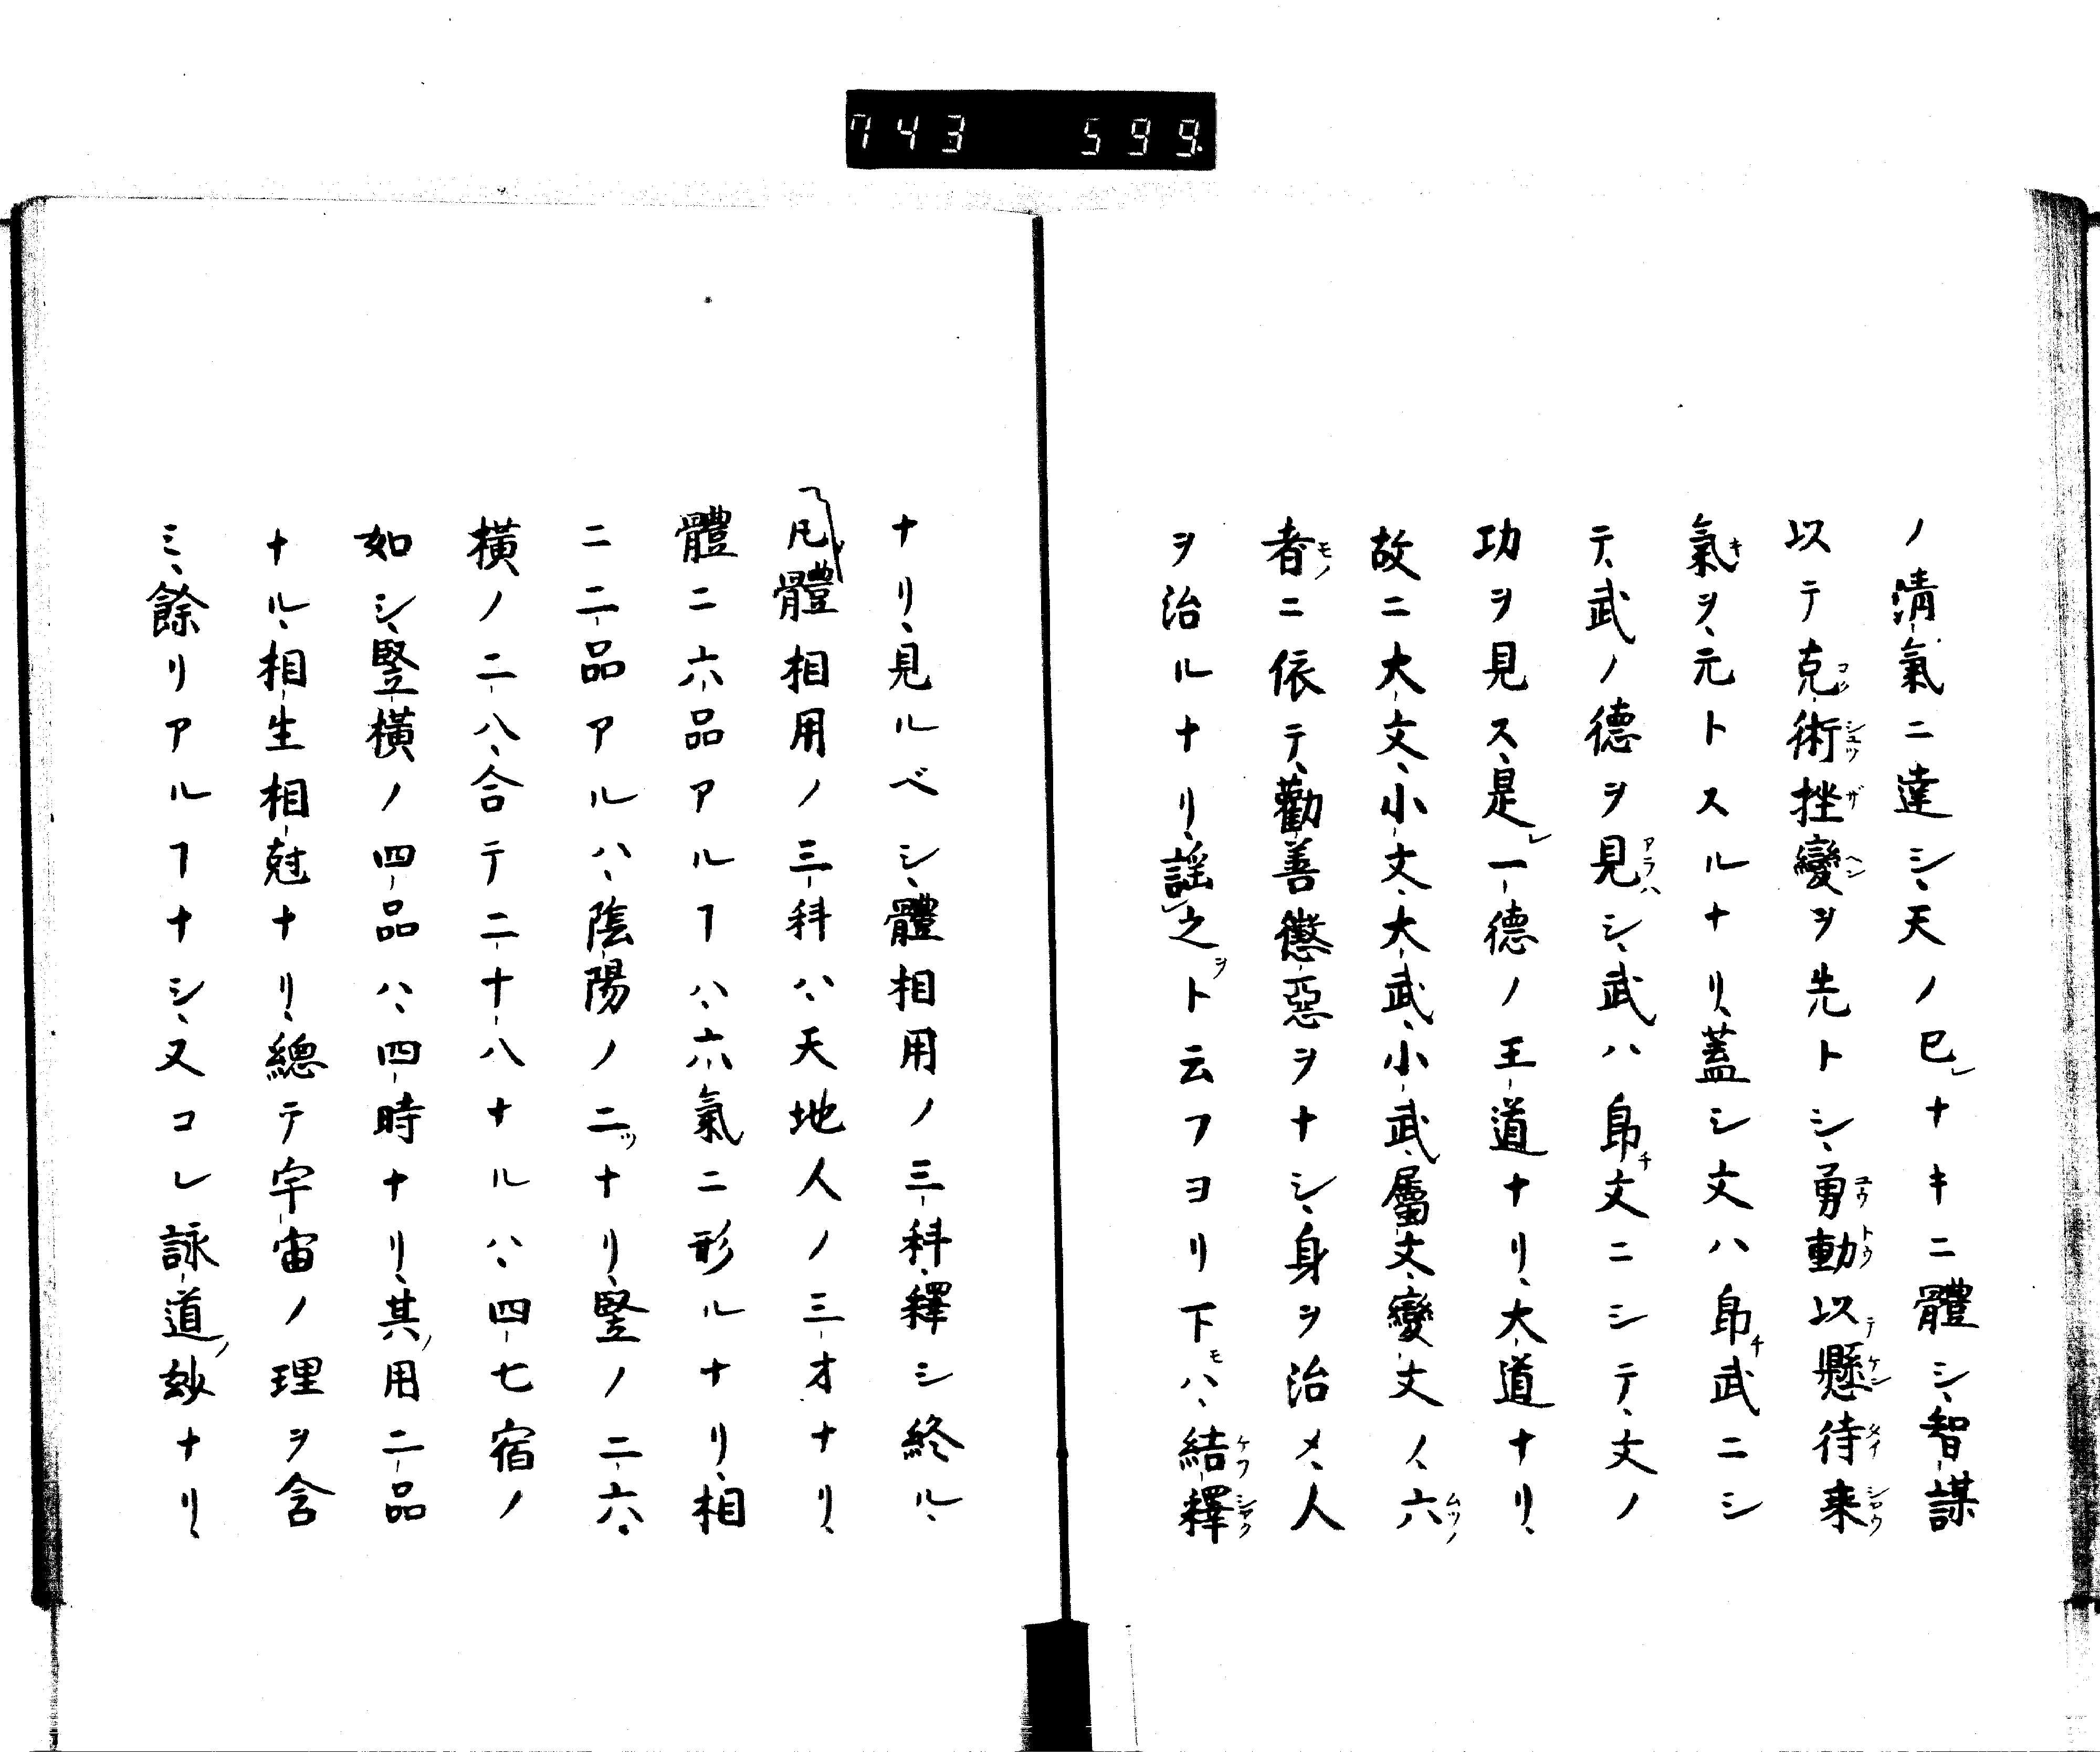 743 599.
ノ清氣ニ達シ、天ノ已レナキニ體シ、智謀
以テ克術挫變ヲ先トシ、勇動以懸待来
氣ヲ、元トスルナリ、蓋シ文ハ即チ武ニシ
テ、武ノ德ヲ見シ、武ハ即チ文ニシテ、文ノ
功ヲ見ス、是レ一德ノ王道ナリ、大道ナリ、
故ニ大文、小文、大武、小武、屬文、變文ノ、六
者ニ依テ、勸善懲惡ヲナシ、身ヲ治メ、人
ヲ治ルナリ、謡レ之ヲト云フヨリ下モハ、結釋
ナリ、見ルベシ、體相用ノ三科、釋シ終ル、
凡體相用ノ三科ハ、天地人ノ三才ナリ、
體ニ六品アルヿハ、六氣ニ形ルナリ、相
ニ二品アルハ、陰陽ノ二ツナリ、竪ノ二六、
橫ノ二八、合テ二十八ナルハ、四七宿ノ
如シ、竪橫ノ四品ハ、四時ナリ、其ノ用二品
ナル、相生相尅ナリ、總テ宇宙ノ理ヲ含
ミ、餘リアルヿナシ、又コレ詠道ノ玅ナリ、